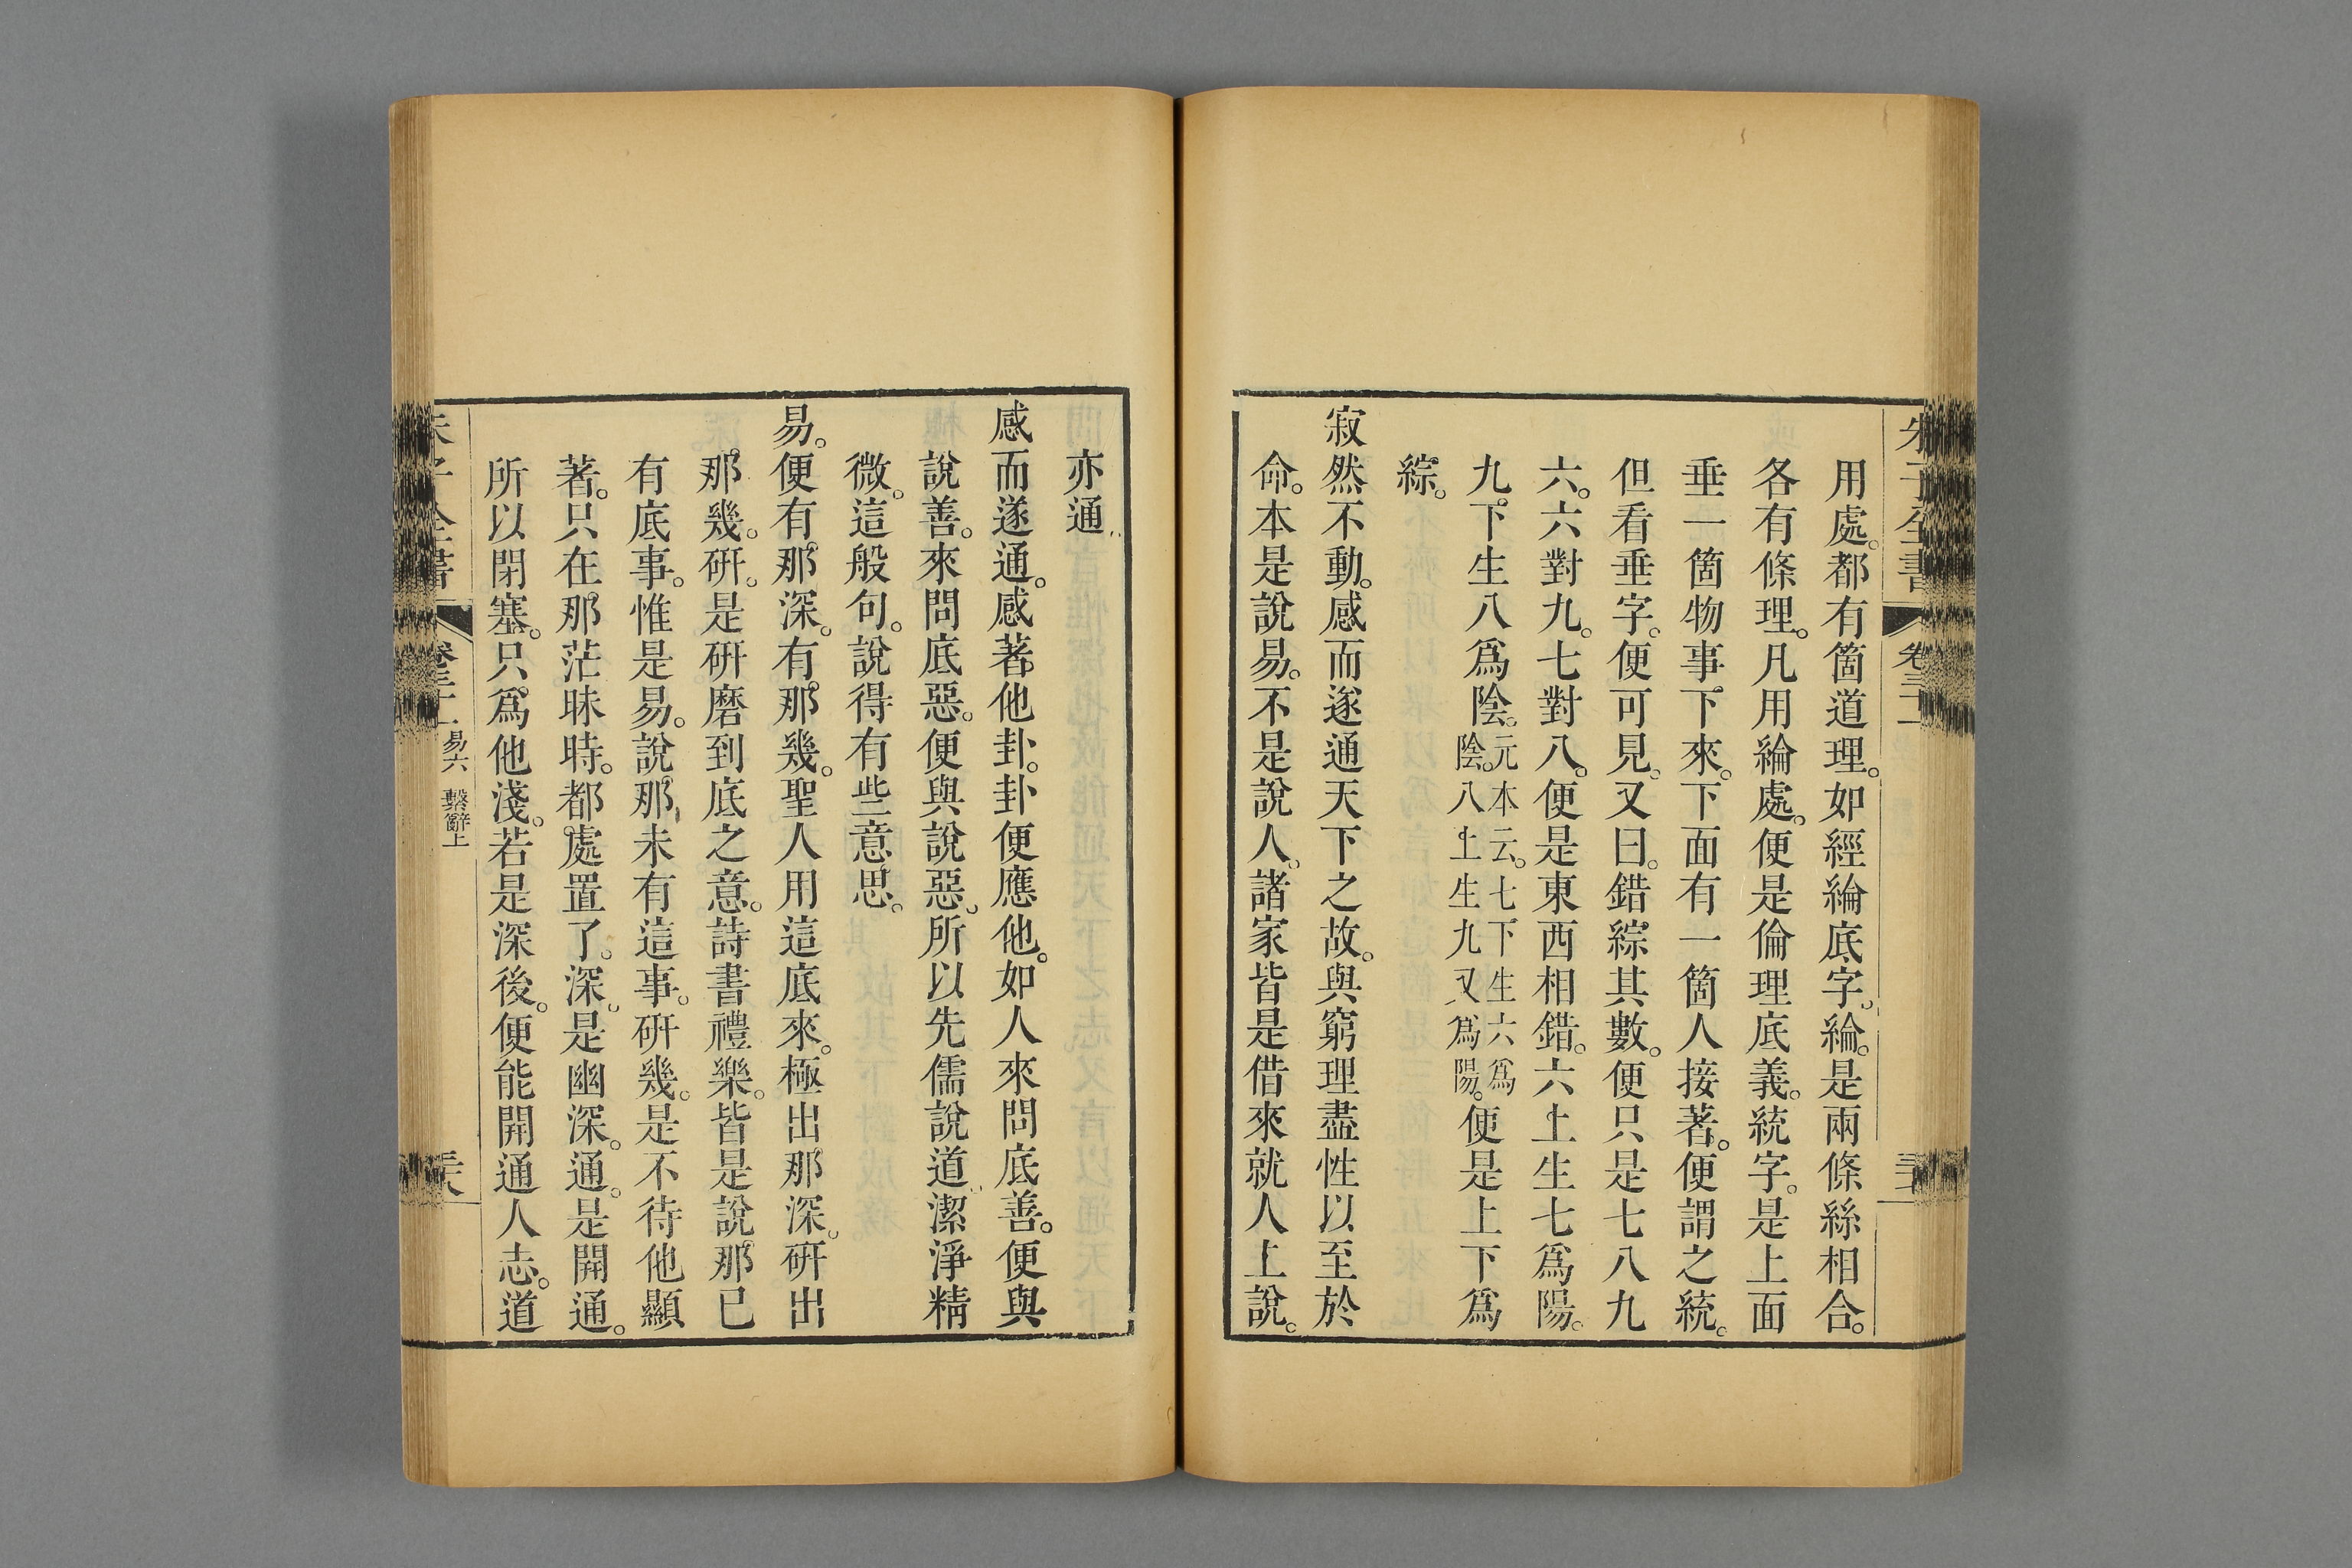 朱子全書
卷三十一
用處。都有箇道理。如經綸底字。綸。是兩條絲相合。
各有條理。凡用綸處。便是倫理底義。統字。是上面
垂一箇物事下來。下面有一箇人接著。便謂之統。
但看垂字。便可見。又曰。錯綜其數。便只是七八九
六。六對九。七對八。便是東西相錯。六上生七爲陽。
九下生八爲陰。元本云。七下生六爲陰。八上生九又爲陽。便是上下爲
綜。
寂然不動。感而遂通天下之故。與窮理盡性以至於
命。本是說易。不是說人。諸家皆是借來就人上說。
亦通
感而遂通。感著他卦。卦便應他。如人來問底善。便與
說善。來問底惡。便與說惡。所以先儒說道潔淨精
微。這般句。說得有些意思。
易。便有那深。有那幾。聖人用這底來。極出那深。研出
那幾。研。是研磨到底之意。詩書禮樂。皆是說那已
有底事。惟是易。說那未有這事。研幾。是不待他顯
著。只在那茫昧時。都處置了。深。是幽深。通。是開通。
所以閉塞。只爲他淺。若是深後。便能開通人志。道
朱子全書
易六 繫辭上